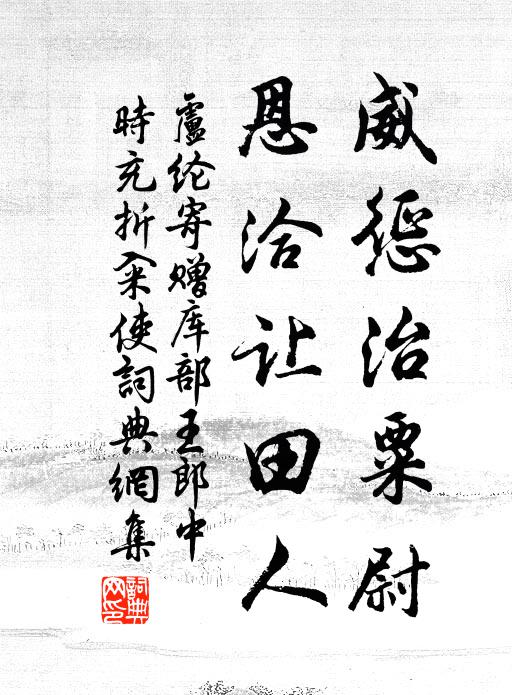 威惩治粟尉
恩洽让田人
盧纶寄赠库部王郎中
時充折籴使詞典網集
詞典
网印